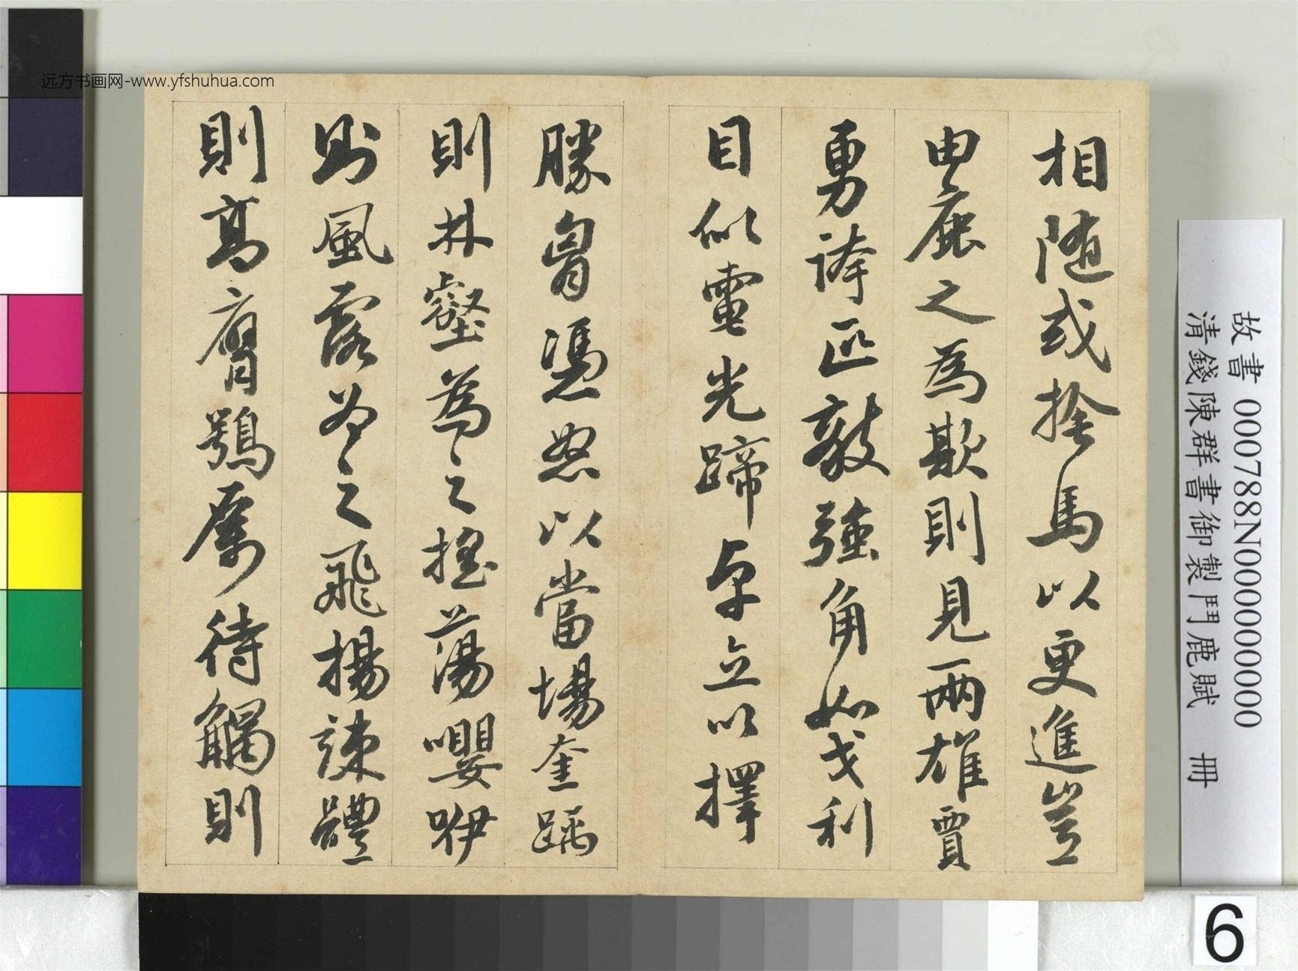 相随或捨馬以更進豈
由鹿之為欺則見兩雄賈
勇誇匹敵強角如戈利
目似電光蹄卓立以擇
勝胷憑怒以當場奎踽
則林壑為之搖蕩嚶咿
則風露為之飛揚竦體
則高膺鶚厲待觸則
故書 000788N000000000
清錢陳群書御製鬥鹿賦 冊
6
远方书画网-www.yfshuhua.com